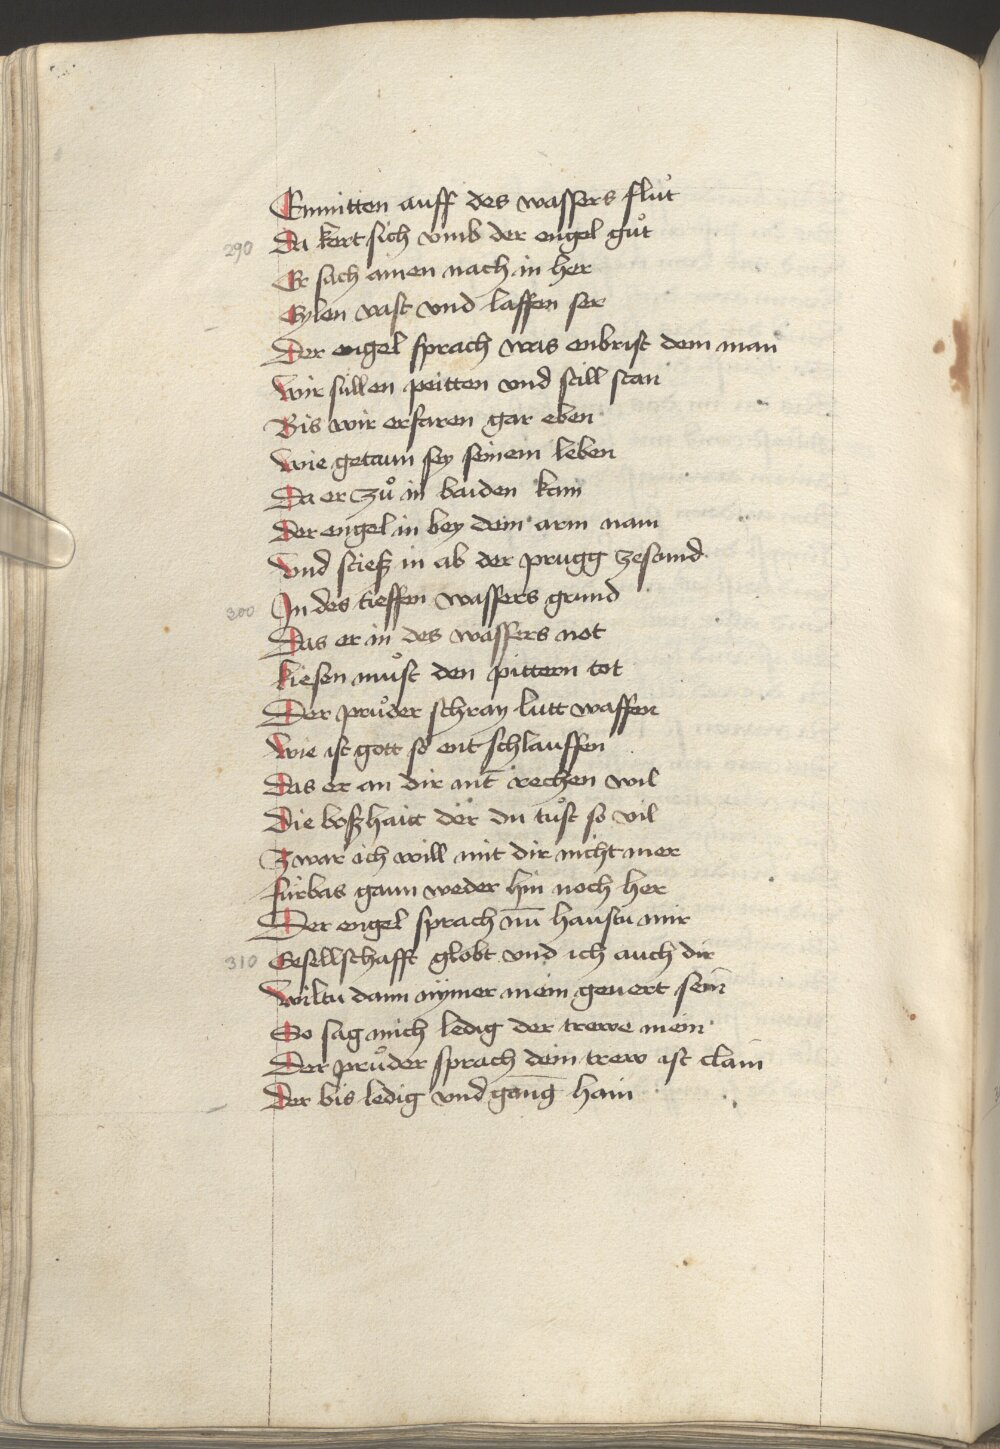 Enmitten auff des wassers flůt
290 Da kert sich vmb der engel gůt
Er sach ainen nach in her
Eylen vast vnd laffen ser
Der engel sprach was enbrist dem man
Wir sullen peitten vnd still stan
Bis wir erfaren gar eben
Wie getaun sey seinem leben
Da er zů in baiden kam
Der engel in bey dem arm nam
Vnd stieß in ab der prugg zesamd
300 In des tieffen wassers grund
Das er in des wassers not
kiesen můst den pittern tot
Der průder schray lutt waffen
Wie ist gott so ent schlauffen
Das er an dir nit rechen wil
Die boßhait der du tůst so vil
Zwar ich will mit dir nicht mer
fürbas gaun weder hin noch her
Der engel sprach nū haustu mir
310 Gesellschafft globt vnd ich auch dir
Wiltu dann nÿmer mein geuert sein
So sag mich ledig der trewe mein
Der průder sprach dein trew ist clain
Der bis ledig vnd gang hain